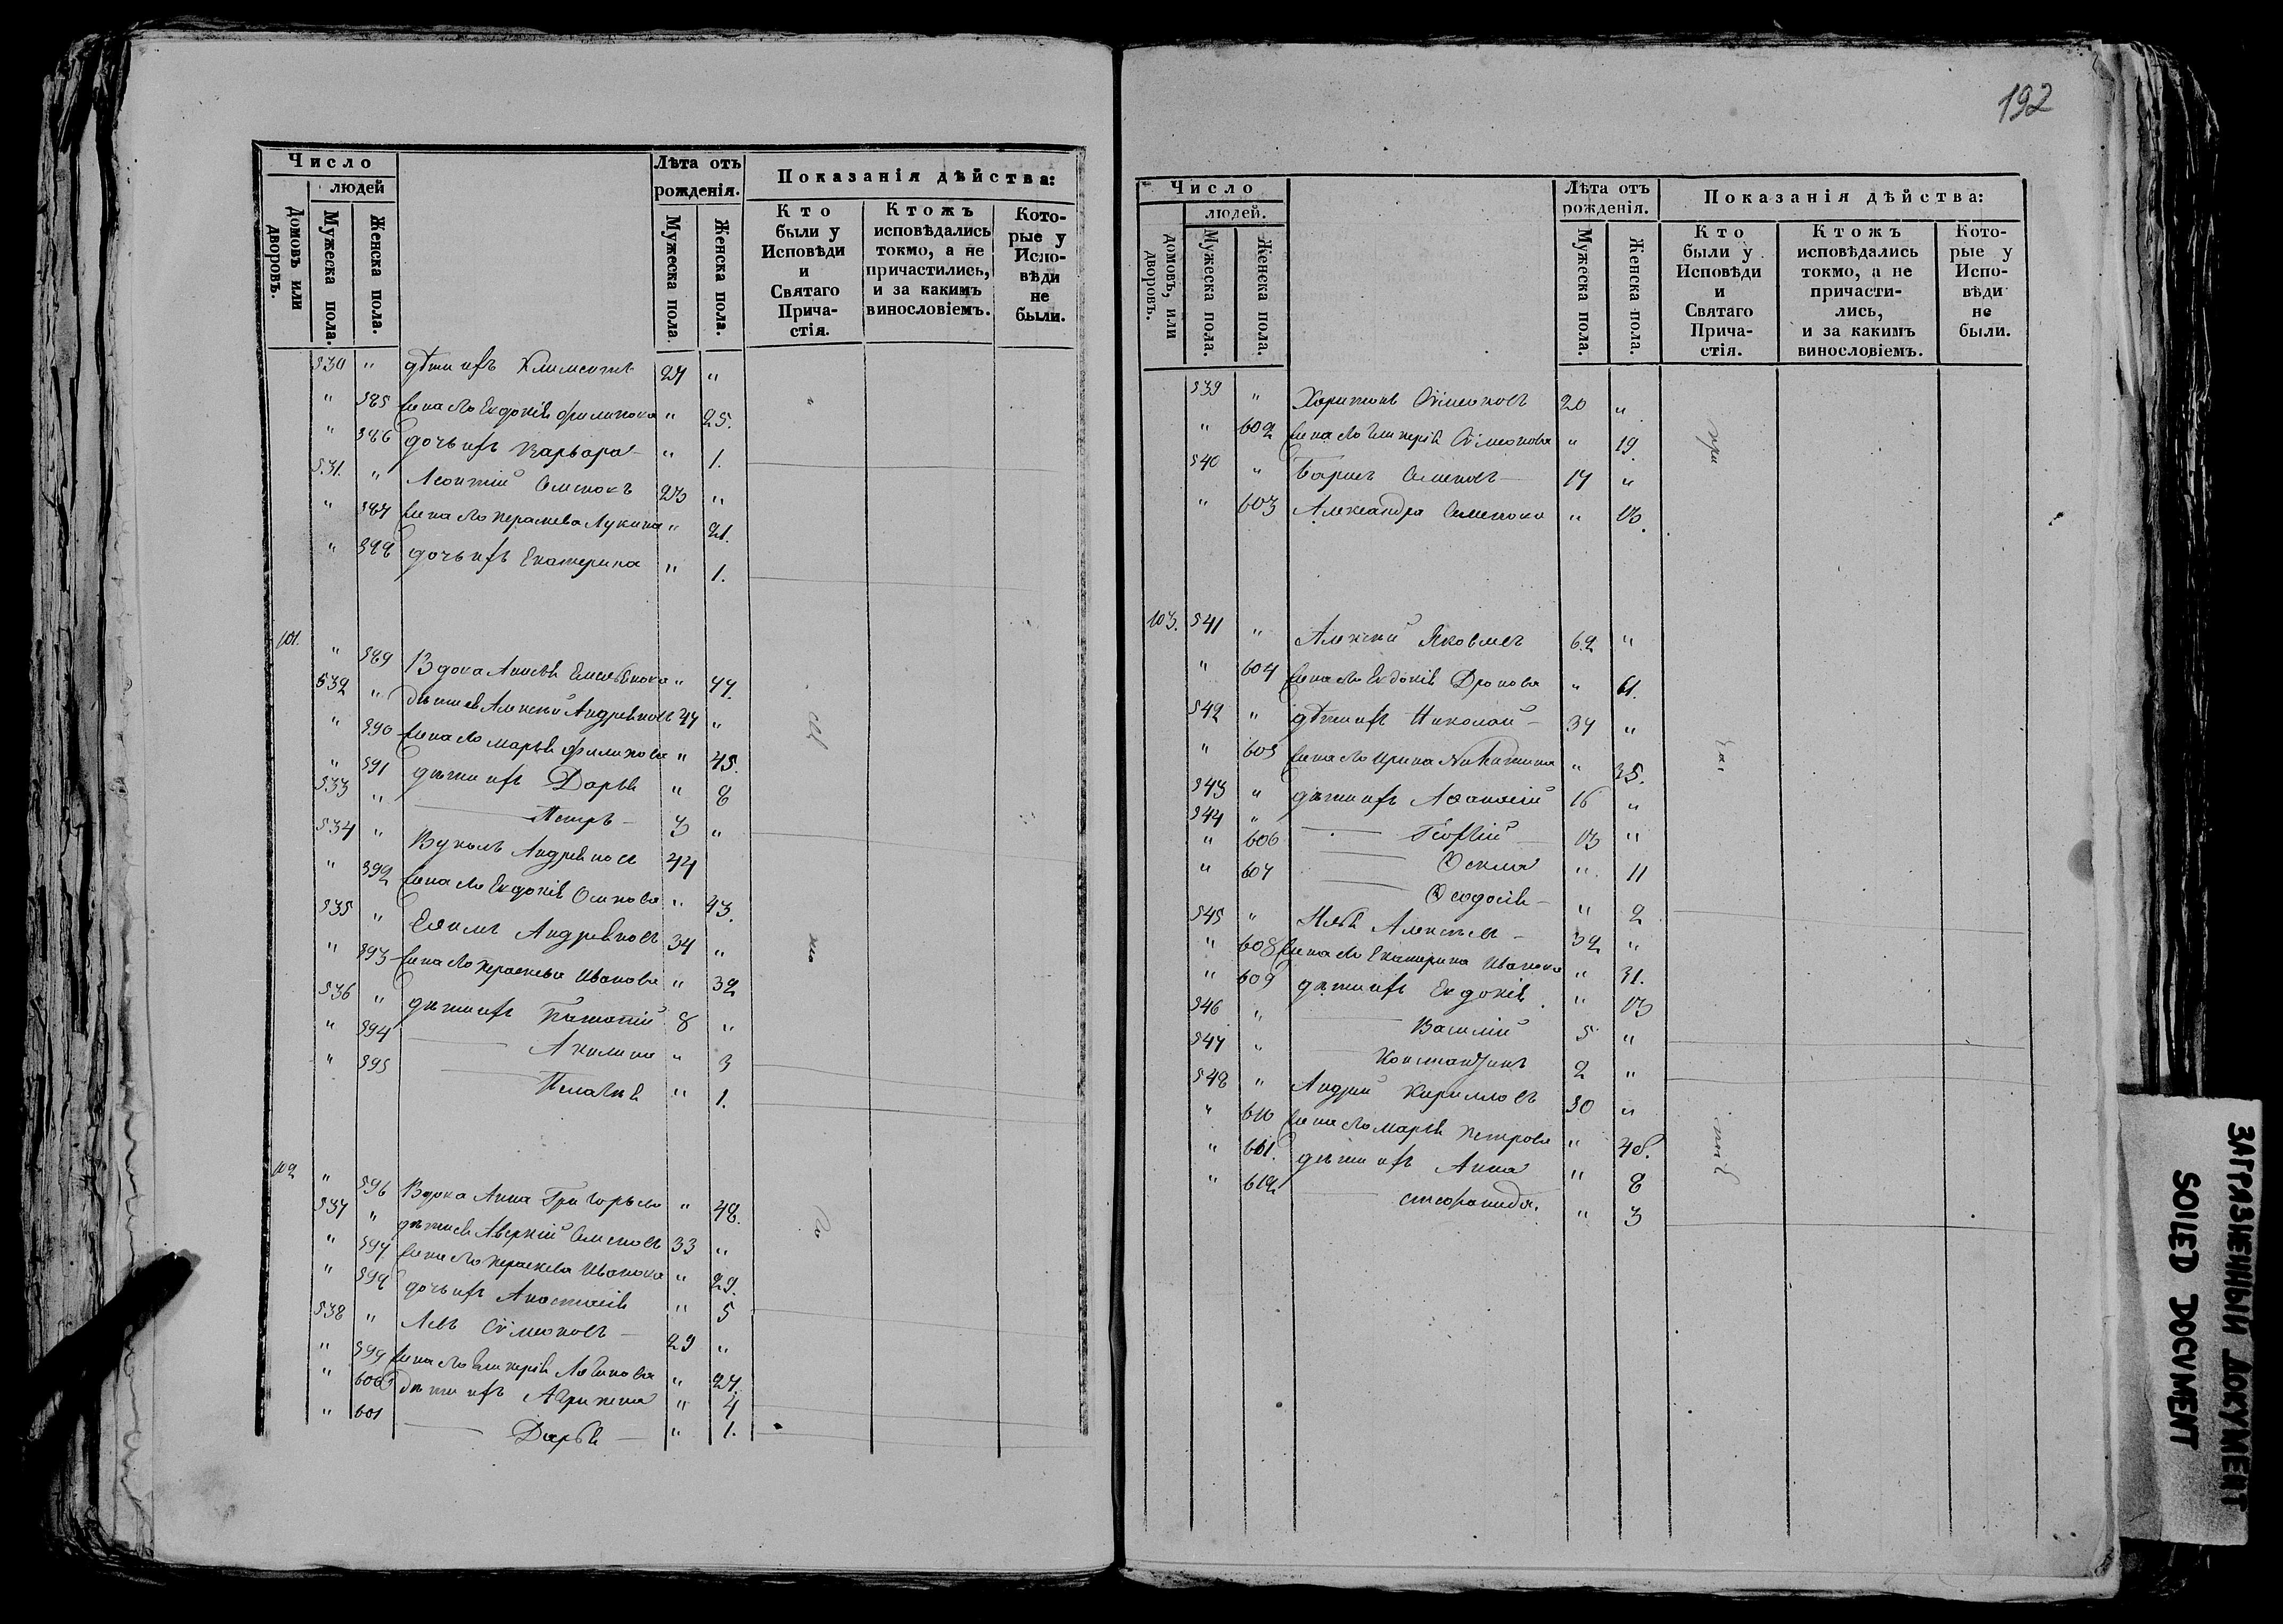 192
Число
людей
Домовъ или дворовъ.
Мужеска пола.
Женска пола.
Лѣта отъ рожденія.
Мужеска пола
Женска пола.
Показанія дѣйства:
Кто были у Исповѣди и Святаго Прича-стія.
Ктожъ исповѣдались токмо, а не причастились, и за какимъ винословіемъ.
Кото-рые у Испо-вѣди не были.
530 " дѣти ихъ Климентъ 27 "
" 585 жена его Евдокія Филипова " 25.
" 586 дочь ихъ Варвара " 1.
531. " Леонтій Семеновъ 23 "
" 587 жена его Параскева Лукина " 21.
" 588 дочь ихъ Екатерина " 1.
101.
" 589 Вдова "
532 " дѣти ея Алексѣй Андреевъ 47 "
" 590 жена его Марья Филипова " 45.
" 591 дѣти ихъ Дарья " 8
533 " — Петръ — 3 "
534 " Вуколъ Андреевъ 44
" 592 жена его Евдокія Осипова " 43.
535 " Ефимъ Андреевъ 34 "
" 593 жена его Параскева Иванова " 32
536 " дѣти ихъ 8 "
" 594 — Акилина " 3
" 595 — Пелагія " 1.
102
" 596 Вдова Анна Григорьева " 48.
537 " дѣти ея Аверкій Семеновъ 33 "
" 597 жена его Параскева Иванова " 29.
" 598 дочь ихъ Анастасія " 5
538 " Левъ Сѵмеоновъ — 29 "
" 599 жена его Гликерія " 27.
" 600 дѣти ихъ Агрипена " 4
" 601 — Дарья — " 1.
Число
людей.
домовъ, или дворовъ.
Мужеска пола.
Женска пола.
Лѣта отъ рожденія.
Мужеска пола.
Женска пола.
Показанія дѣйства:
Кто были у Исповѣди и Святаго Прича-стія.
Ктожъ исповѣдались токмо, а не причасти-лись, и за какимъ винословіемъ.
Кото-рые у Испо-вѣди не были.
539 " Харитонъ Сѵмеоновъ 20 "
" 602 жена его Гликерія Сѵмеонова " 19.
540 " Борисъ Семеновъ — 17 "
" 603 Александра Семенова " 13.
103. 541 " Алексѣй Яковлевъ 62 "
" 604 жена его Евдокія " 61.
542 " дѣти ихъ Николай — 37 "
" 605 жена его Ирина Никитина " 35.
543 " дѣти ихъ Аѳанасій 16 "
544 " — Георгій — 13 "
" 606 — Ѳекла " 11
" 607 — Ѳеодосія — " 2
545 " Илья Алексѣевъ — 32 "
" 608 жена его Екатерина Иванова " 31.
" 609 дѣти ихъ Евдокія " 13
546 " Василій 5 "
547 " Константинъ 2 "
548 " Андрей Кирилловъ 30 "
" 610 жена его Марья Петрова "
" 611. дѣти ихъ Анна " 8
" 612 — Стефанида. " 3
ЗАГРЯЗНЕННЫЙ ДОКУМЕНТ
SOILED DOCUMENT